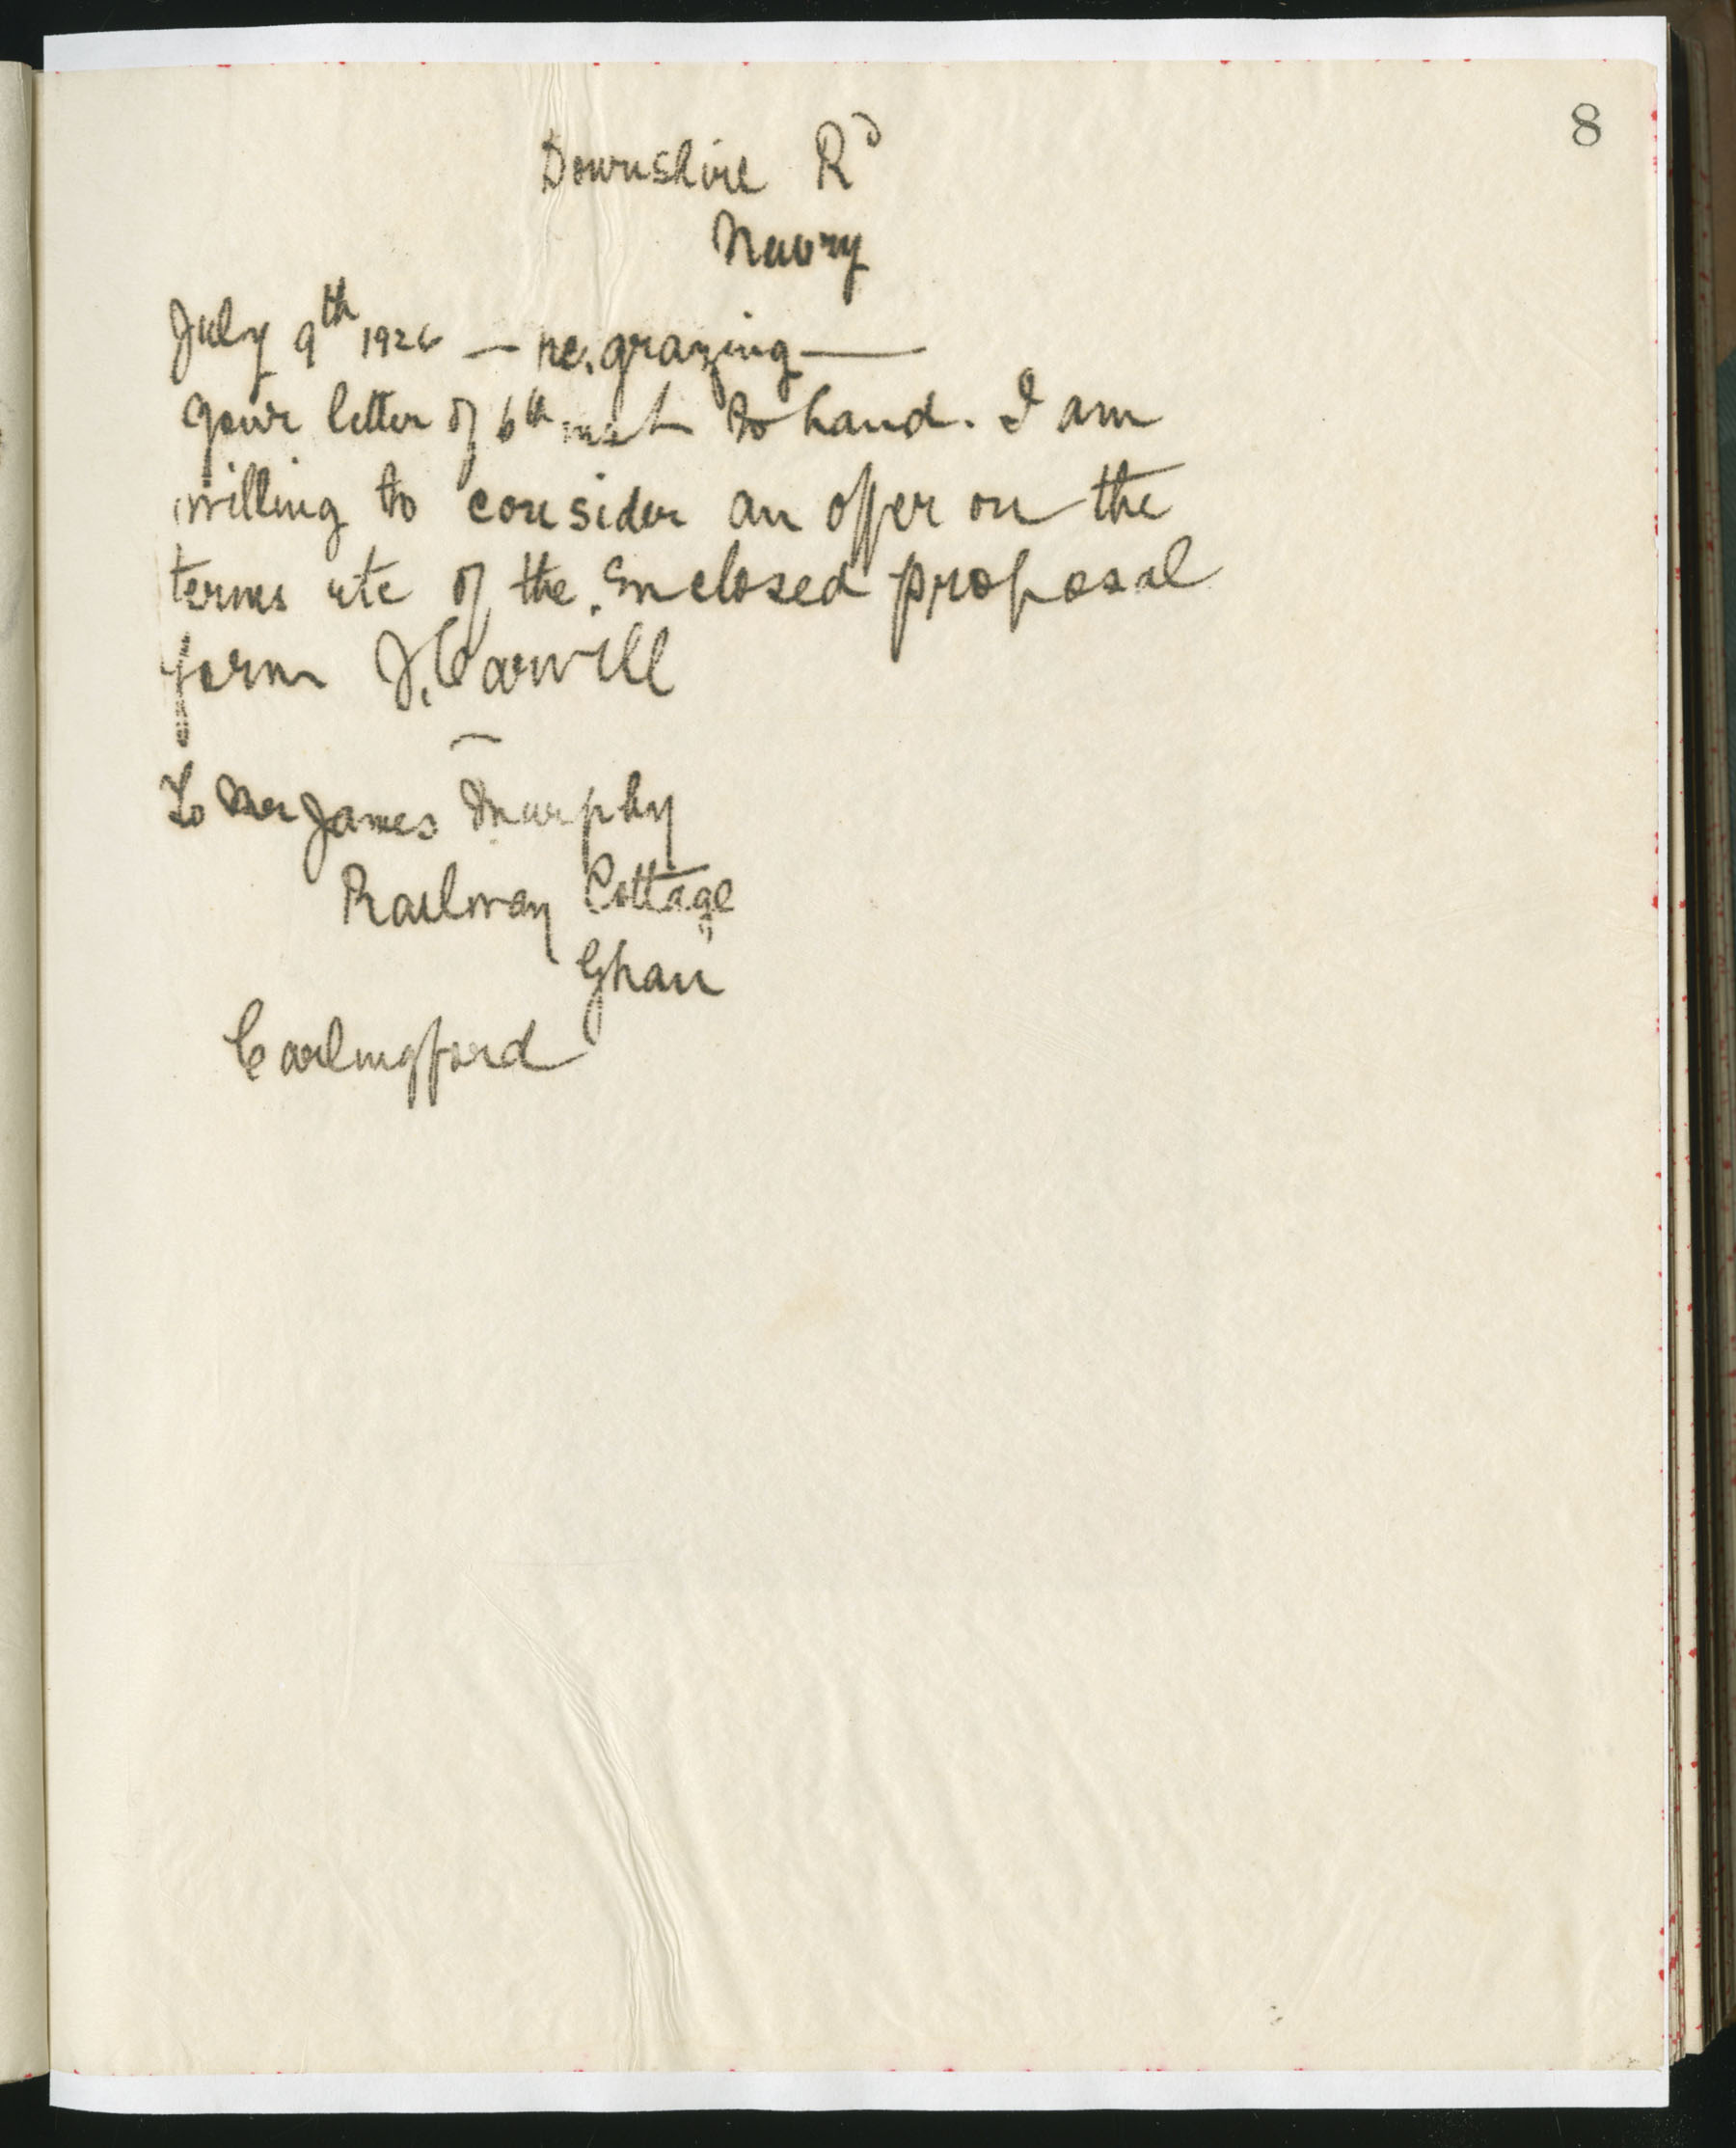 8
Downshire Rd
Newry
July 9th 1926 — re. grazing —
Your letter of 6th inst to hand. I am
willing to consider an offer on the
terms etc of the enclosed proposal
form J. Carvill
To Mr James Murphy
Railway Cottage
Ghan
Carlingford